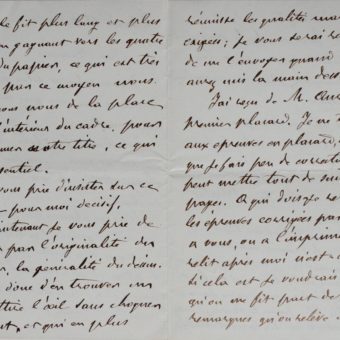 le fit plus long et plus
en gagnant vers les quatre
du papier, ce qui est très
par ce moyen nous
nous de la place
l'intérieur du cadre, pour
notre titre, ce qui
essentiel.
vous prie d'insister sur ce
pour moi décisif.
maintenant je vous prie de
par l'originalité du
la generalité du dessin.
donc d'en trouver un
mettre l'œil sans choquer
et qui en plus
réunisse les qualités
exigées; je vous serai
de me l'envoyer quand
aurez mis la main
J'ai reçu de M.
premier placard. Je
aux epreuves en placard,
que je fais peu de
peut mettre tout de
pages. A qui dois-je
les épreuves corrigées
a vous, ou a
relit après moi
si cela est je voudrais
qu'on me fit part des
remarques qu'on relève